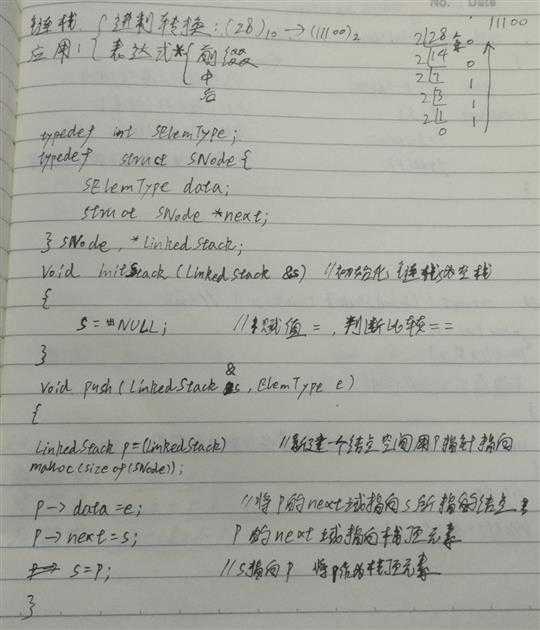 No. Date
链栈 { 进制转换: (28)₁₀ → (11100)₂ 11100
应用: { 表达式 { 前缀
中
后
2|28 余 0
2|14 0
2|7 1
2|3 1
2|1 1
0
typedef int SElemType;
typedef struct SNode {
SElemType data;
struct SNode *next;
} SNode, *LinkedStack;
void initStack (LinkedStack &s) //初始化 链栈 空栈
{
s = NULL; //赋值 =, 判断比较 ==
}
void push (LinkedStack &s, ElemType e)
{
LinkedStack p=(LinkedStack) //新建一个结点空间用P指针指向
malloc(sizeof(SNode));
p-> data=e; //将P的next域指向s所指的结点
p-> next=s; P的next域指向栈顶元素
s=p; //s指向P 将P作为栈顶元素
}